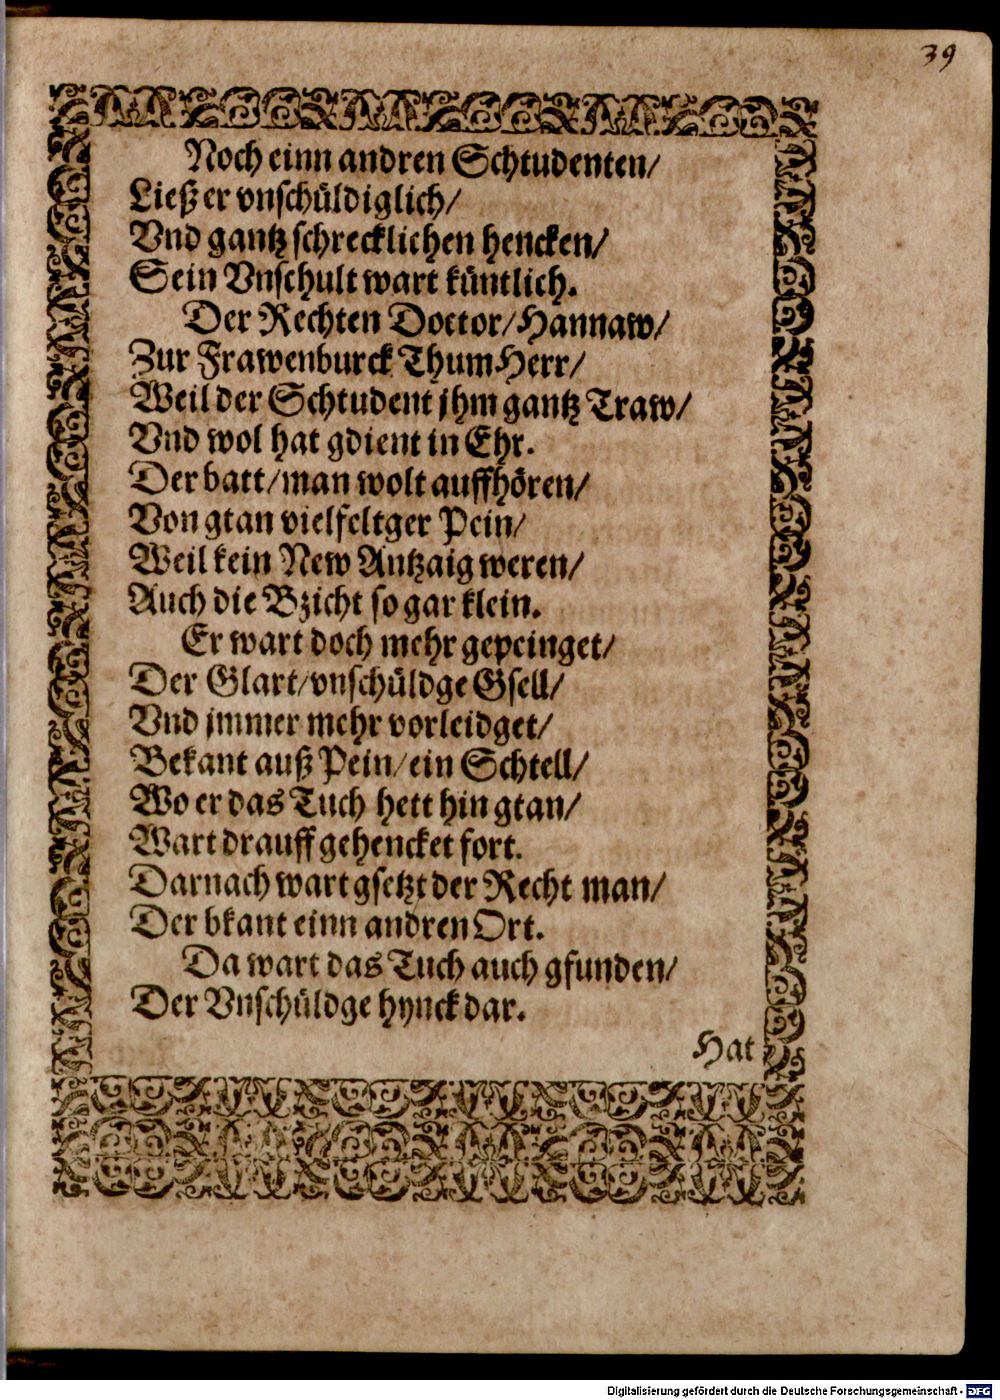 39
Noch einn andren Schtudenten/
Ließ er vnschüldiglich/
Vnd gantz schrecklichen hencken/
Sein Vnschult wart küntlich.
Der Rechten Doctor/Hannaw/
Zur Frawenburck ThumHerr/
Weil der Schtudent jhm gantz Traw/
Vnd wol hat gdient in Ehr.
Der batt/man wolt auffhören/
Von gtan vielfeltger Pein/
Weil kein New Antzaig weren/
Auch die Bzicht so gar klein.
Er wart doch mehr gepeinget/
Der Glart/vnschüldge Gsell/
Vnd jmmer mehr vorleidget/
Bekant auß Pein/ein Schtell/
Wo er das Tuch hett hin gtan/
Wart drauff gehencket fort.
Darnach wart gsetzt der Recht man/
Der bkant einn andren Ort.
Da wart das Tuch auch gfunden/
Der Vnschüldge hynck dar.
Hat
Digitalisierung gefördert durch die Deutsche Forschungsgemeinschaft - DFG